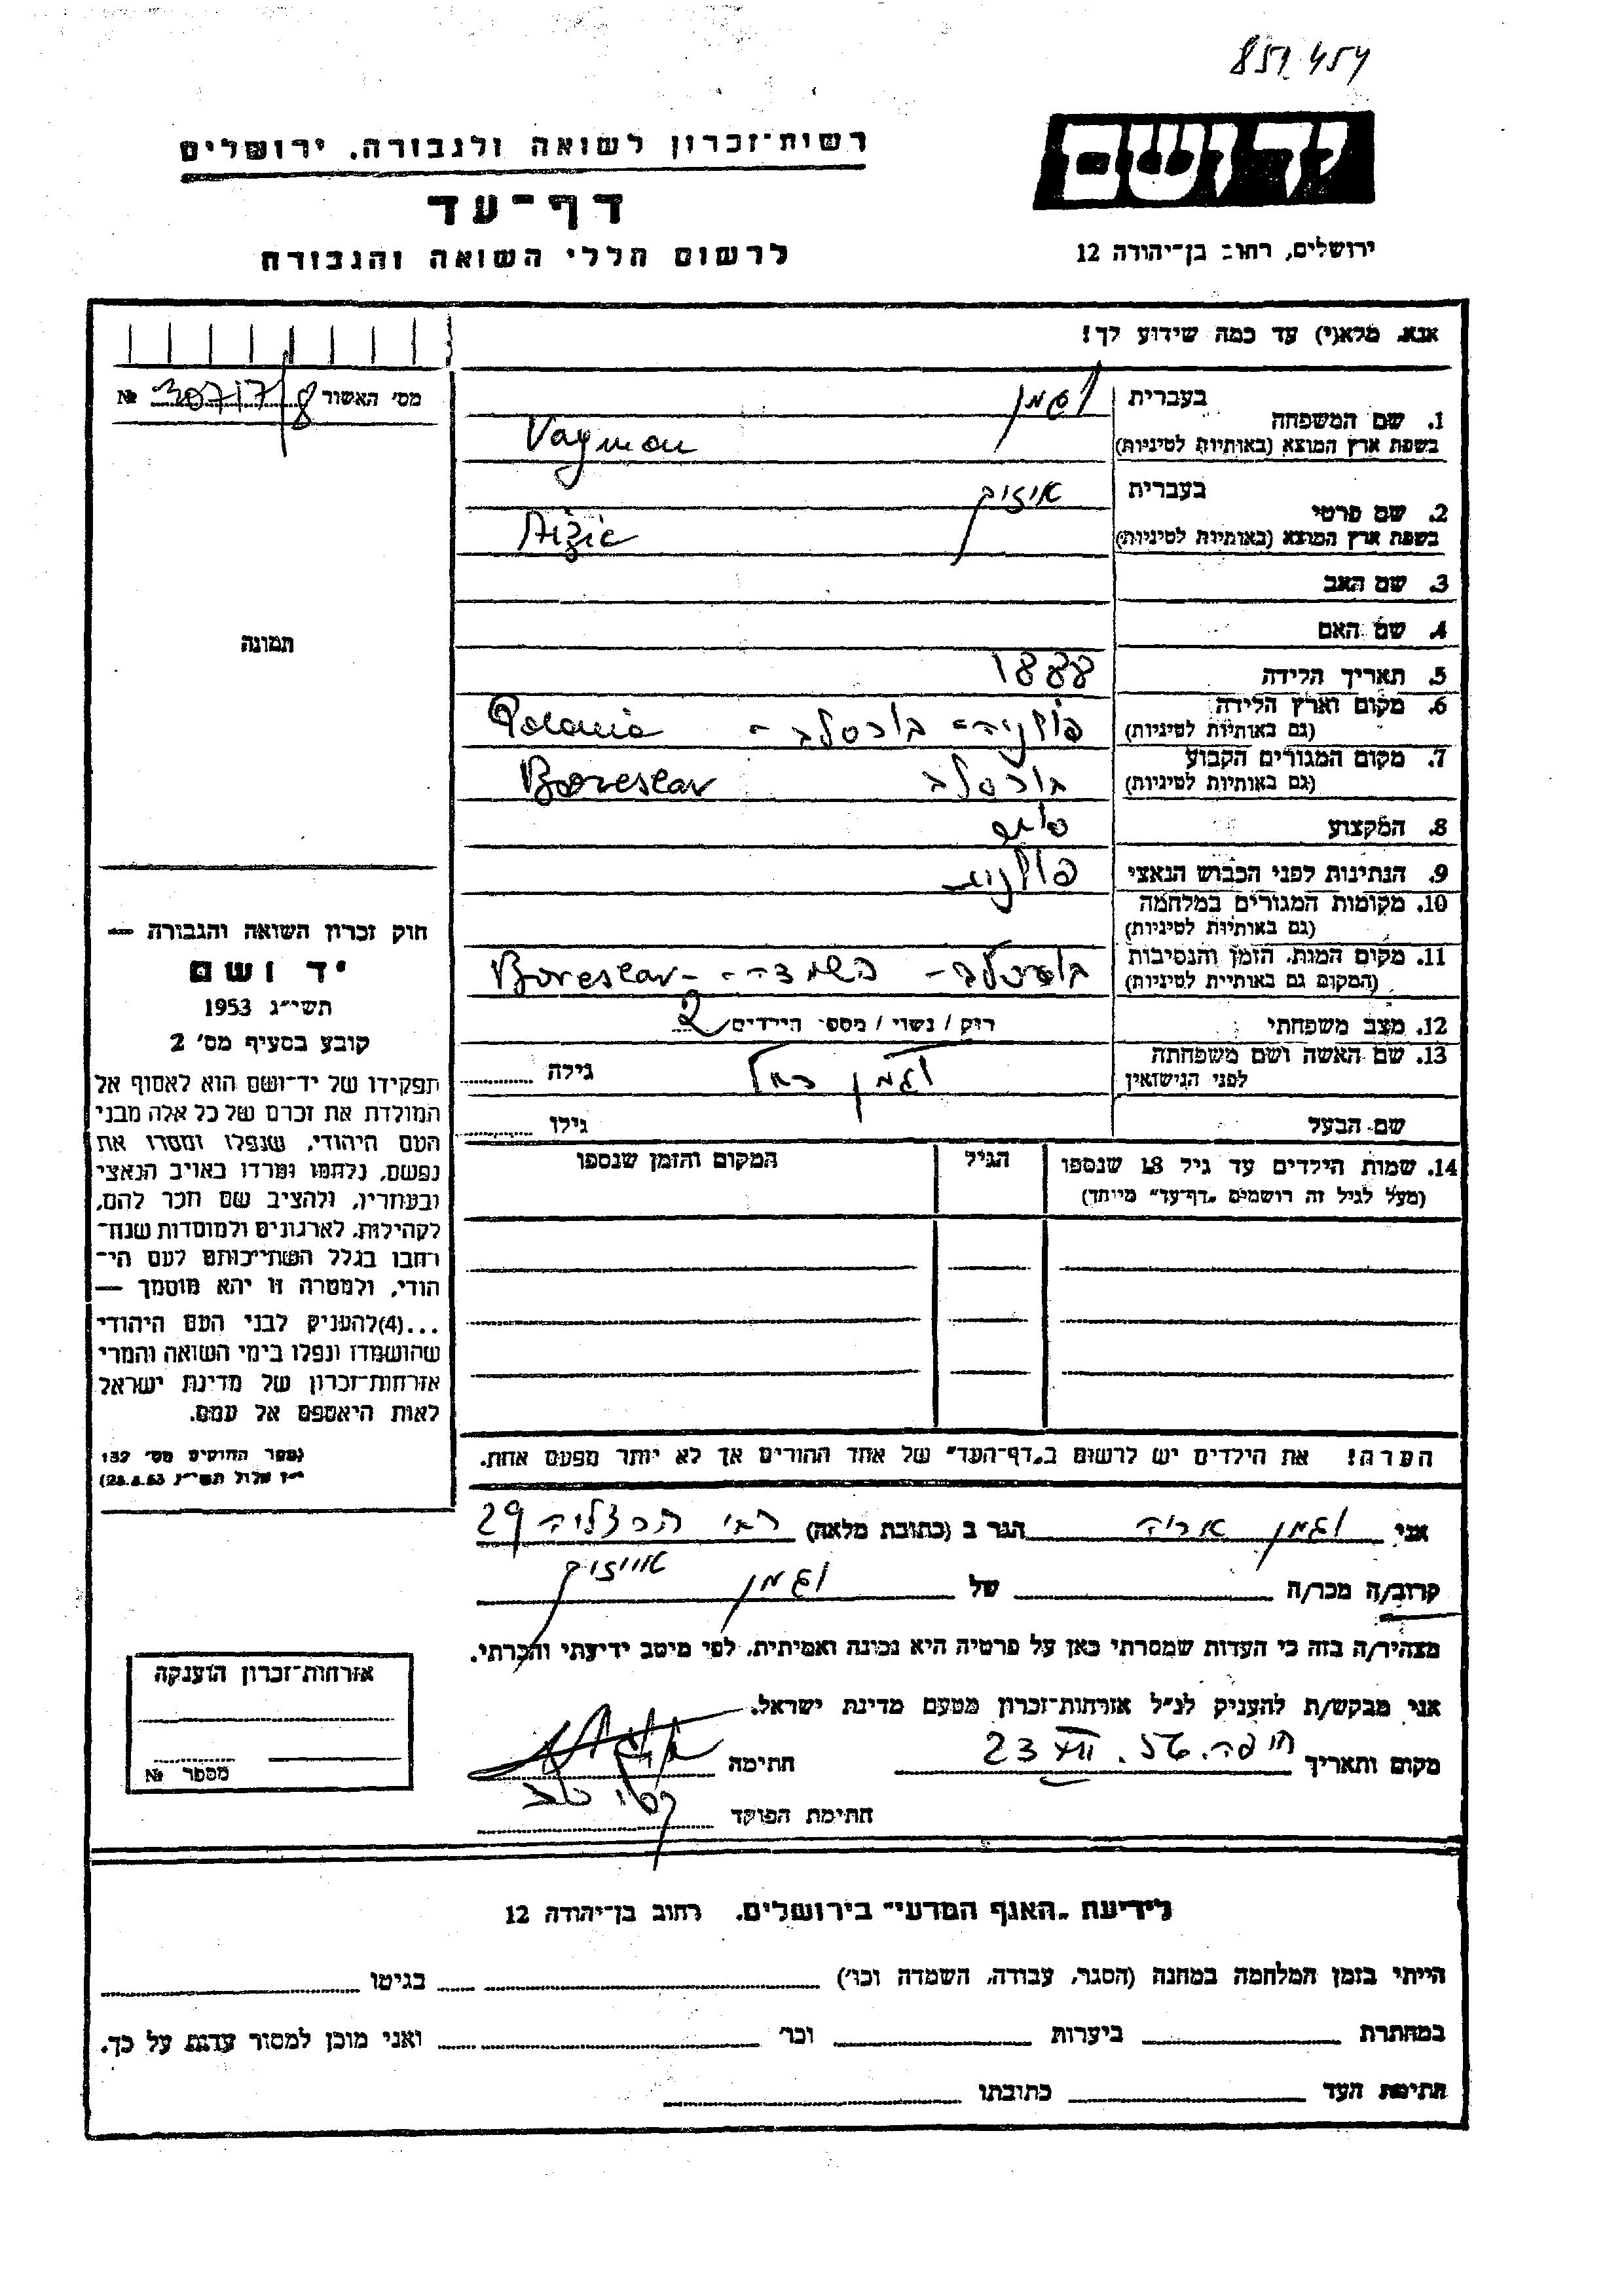 851 454
יד ושם
ירושלים, רחוב בן־יהודה 12
רשות־זכרון לשואה ולגבורה, ירושלים
דף־עד
לרשום חללי השואה והגבורה
אנא, מלא(י) עד כמה שידוע לך!
מס׳ האשור 30717/8 №
תמונה
1. שם המשפחה בעברית וגמן
בשפת ארץ המוצא (באותיות לטיניות) Vagman
2. שם פרטי בעברית אייזיק
בשפת ארץ המוצא (באותיות לטיניות) Aizic
3. שם האב
4. שם האם
5. תאריך הלידה 1888
6. מקום וארץ הלידה פולניה - בורסלב - Polania
(גם באותיות לטיניות)
7. מקום המגורים הקבוע בורסלב Boreslav
(גם באותיות לטיניות)
8. המקצוע
9. הנתינות לפני הכבוש הנאצי פולנית
10. מקומות המגורים במלחמה
(גם באותיות לטיניות)
11. מקום המות, הזמן והנסיבות בורסלב - השמדה - Boreslav
(המקום גם באותיות לטיניות)
12. מצב משפחתי רווק / נשוי / מספר הילדים 2
13. שם האשה ושם משפחתה וגמן רחל גילה
לפני הנישואין
שם הבעל גילו
14. שמות הילדים עד גיל 18 שנספו הגיל המקום והזמן שנספו
(מעל לגיל זה רושמים „דף־עד״ מיוחד)
הערה! את הילדים יש לרשום ב„דף־העד״ של אחד ההורים אך לא יותר מפעם אחת.
חוק זכרון השואה והגבורה —
יד ושם
תשי״ג 1953
קובע בסעיף מס׳ 2
תפקידו של יד־ושם הוא לאסוף אל
המולדת את זכרם של כל אלה מבני
העם היהודי, שנפלו ומסרו את
נפשם, נלחמו ומרדו באויב הנאצי
ובעוזריו, ולהציב שם וזכר להם,
לקהילות, לארגונים ולמוסדות שנח־
רבו בגלל השתייכותם לעם הי־
הודי, ולמטרה זו יהא מוסמך —
...(4)להעניק לבני העם היהודי
שהושמדו ונפלו בימי השואה והמרי
אזרחות־זכרון של מדינת ישראל
לאות היאספם אל עמם.
(ספר החוקים מס׳ 132
י״ז אלול תשי״ג 28.8.53)
אני וגמן אריה הגר ב (כתובת מלאה) הרצליה 29
קרוב/ה מכר/ה של וגמן אייזיק
מצהיר/ה בזה כי העדות שמסרתי כאן על פרטיה היא נכונה ואמיתית, לפי מיטב ידיעתי והכרתי.
אני מבקש/ת להעניק לנ״ל אזרחות־זכרון מטעם מדינת ישראל.
מקום ותאריך חיפה. 56. VII 23 חתימה
חתימת הפוקד
אזרחות־זכרון הוענקה
מספר №
לידיעת „האגף המדעי״ בירושלים, רחוב בן־יהודה 12
הייתי בזמן המלחמה במחנה (הסגר, עבודה, השמדה וכו׳) בגיטו
במחתרת ביערות וכו׳ ואני מוכן למסור עדות על כך.
חתימת העד כתובתו